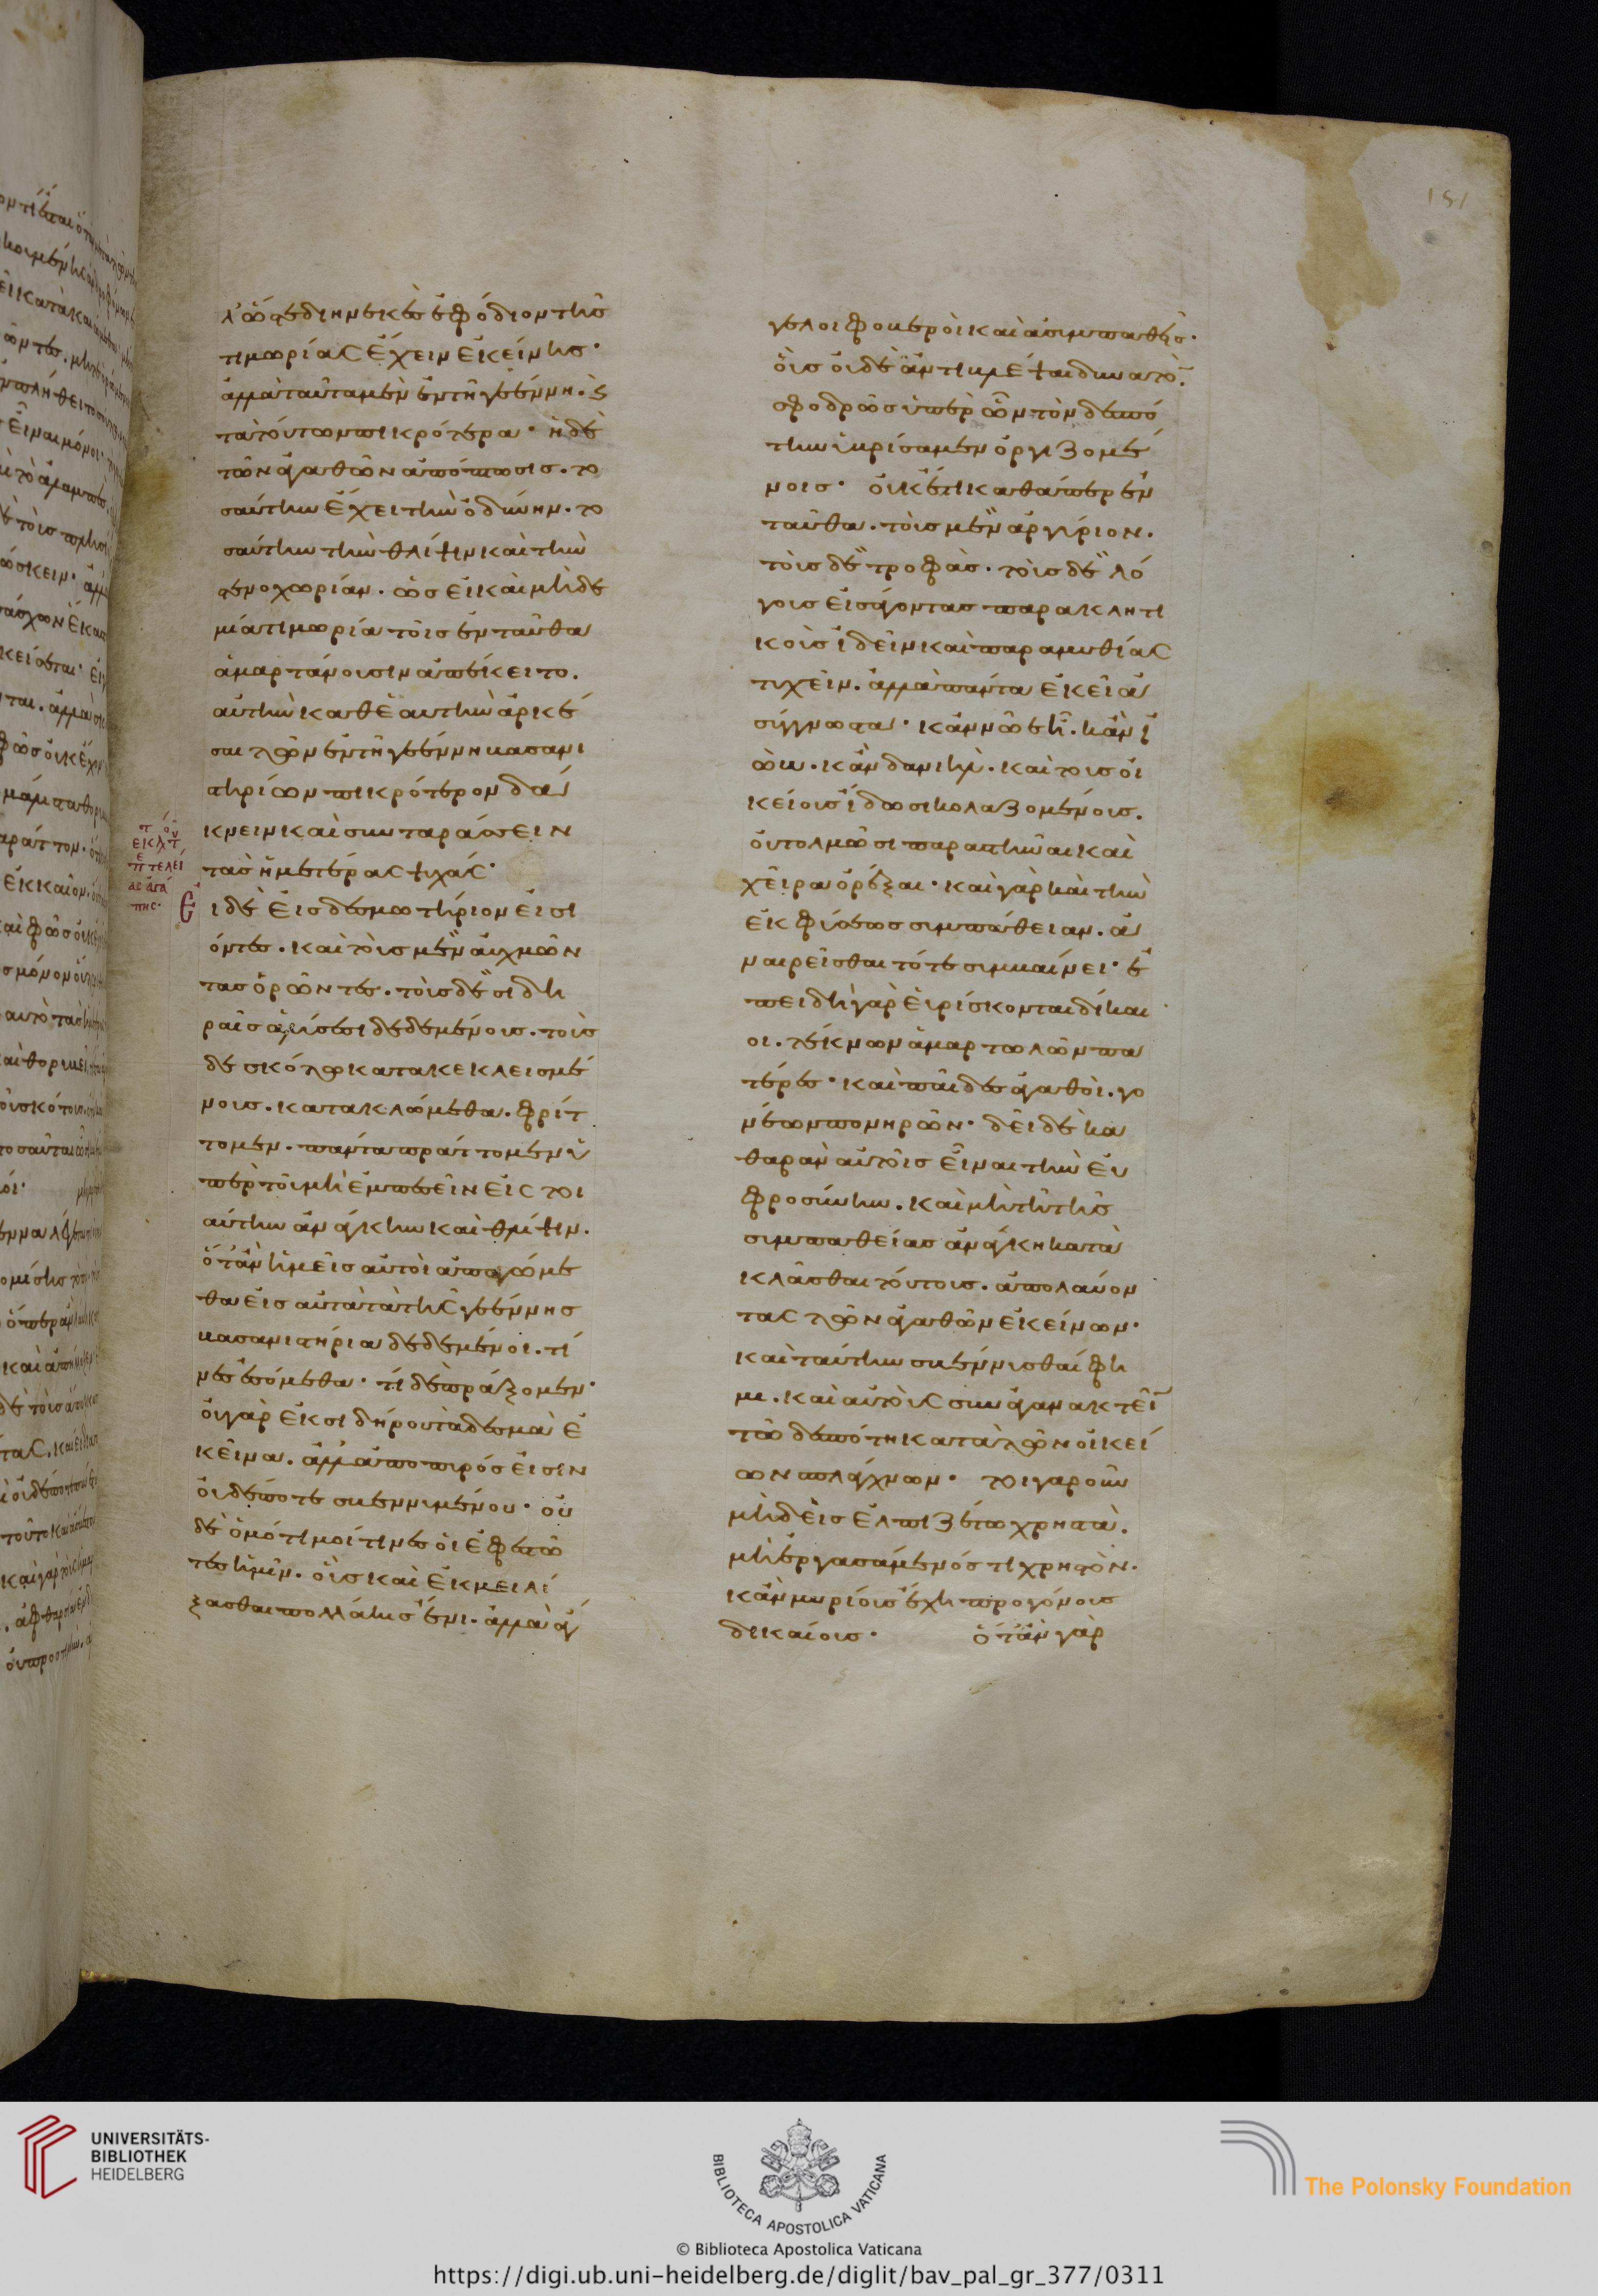 λως τε διηνεκὲς ἐφόδιον τῆς
τιμωρίας ἔχειν ἐκείνης·
ἀλλὰ ταῦτα μὲν ἐν τῆ γεέννη. ϛ
τὰ τούτων πικρότερα· ἡ δὲ
τῶν ἀγαθῶν ἀπόπτωσις. το
σαύτην ἔχει τὴν ὀδύνην. το
σαύτην τὴν θλίψιν καὶ τὴν
στενοχωρίαν. ὡς εἰ καὶ μὴδε
μία τιμωρία τοῖς ἐνταῦθα
ἁμαρτάνουσιν ἀπέκειτο.
αὐτὴν καθ' ἑαυτὴν ἀρκέ
σαι τῶν ἐν τῆ γεέννη βασανι
στηρίων πικρότερον δά
κνειν καὶ συνταράσσειν
τὰς ἡμετέρας ψυχάς·
Εἰ δὲ εἰς δεσμωτήριον εἰσι
όντες. καὶ τοὺς μὲν αὐχμῶν
τας ὁρῶντες. τοὺς δὲ σιδη
ραῖς ἁλύσεσι δεδεμένους. τοὺς
δὲ σκότω κατακεκλεισμέ
νους. κατακλώμεθα. φρίτ
τομεν. πάντα πράττομεν ὑ
πὲρ τοῦ μὴ ἐμπεσεῖν εἰς τοι
αύτην ἀνάγκην καὶ θλίψιν.
ὅταν ἡμεῖς αὐτοὶ ἀπαγώμε
θα εἰς αὐτὰ τὰ τῆς γεέννης
βασανιστήρια δεδεμένοι. τί
νες ἐσόμεθα· τί δὲ πράξομεν·
οὐ γὰρ ἐκ σιδήρου τὰ δεσμὰ ἐ
κεῖνα. ἀλλ' ἀπὸ πυρός εἰσιν
οὐδέποτε σβεννυμένου· οὐ
δὲ ὁμότιμοί τινες οἱ ἐφεστῶ
τες ἡμῖν. οὓς καὶ ἐκμειλί
ξασθαι πολλάκις ἔνι· ἀλλὰ ἄγ
γελοι φοβεροὶ καὶ ἀσυμπαθεῖς·
οἷς οὐδὲ ἀντιβλέψαι δυνατὸν.
σφοδρῶς ὑπὲρ ὧν τὸν δεσπό
την ὑβρίσαμεν ὀργιζομέ
νοις· οὐκ ἔστι καθάπερ ἐν
ταῦθα. τοὺς μὲν ἀργύριον.
τοὺς δὲ τροφὰς. τοὺς δὲ λό
γους εἰσάγοντας παρακλητι
κοὺς ἰδεῖν καὶ παραμυθίας
τυχεῖν. ἀλλὰ πάντα ἐκεῖ ἀ
σύγγνωστα· κἂν νῶε ἦ. κἂν ἰ
ώβ. κἂν δανιὴλ. καὶ τοὺς οἰ
κείους ἴδωσι κολαζομένους.
οὐ τολμῶσι παραστῆναι καὶ
χεῖρα ὀρέξαι· καὶ γὰρ καὶ τὴν
ἐκ φύσεως συμπάθειαν. ἀ
ναιρεῖσθαι τότε συμβαίνει· ἐ
πειδὴ γὰρ εὑρίσκονται δίκαι
οι. τέκνων ἁμαρτωλῶν πα
τέρες· καὶ παῖδες ἀγαθοὶ. γο
νέων πονηρῶν· δεῖ δὲ κα
θαρὰν αὐτοῖς εἶναι τὴν εὐ
φροσύνην. καὶ μὴ τῆ τῆς
συμπαθείας ἀνάγκη κατα
κλᾶσθαι τούτους. ἀπολαύον
τας τῶν ἀγαθῶν ἐκείνων·
καὶ ταύτην σβέννυσθαί φη
μι. καὶ αὐτοὺς συναγανακτεῖν
τῶ δεσπότη κατὰ τῶν οἰκεί
ων σπλάγχνων· τοιγαροῦν
μὴδεὶς ἐλπιζέτω χρηστὰ.
μὴ ἐργασάμενός τι χρηστὸν.
κἂν μυρίους ἔχη προγόνους
δικαίους· ὅταν γὰρ
151
UNIVERSITÄTS-
BIBLIOTHEK
HEIDELBERG
BIBLIOTECA APOSTOLICA VATICANA
© Biblioteca Apostolica Vaticana
The Polonsky Foundation
https://digi.ub.uni-heidelberg.de/diglit/bav_pal_gr_377/0311